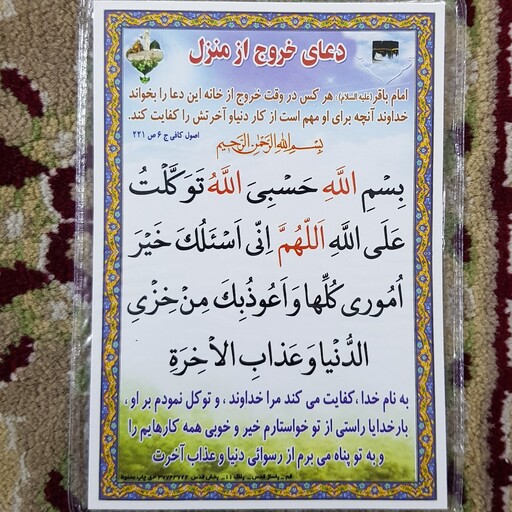 دعای خروج از منزل
امام باقر (علیه السلام): هر کس در وقت خروج از خانه این دعا را بخواند
خداوند آنچه برای او مهم است از کار دنیا و آخرتش را کفایت کند.
اصول کافی ج ۶ ص ۲۲۱
بِسْمِ اللهِ الرَّحْمٰنِ الرَّحِیمِ
بِسْمِ اللهِ حَسْبِیَ اللهُ تَوَکَّلْتُ
عَلَی اللهِ اَللّهُمَّ اِنّی اَسْئَلُکَ خَیْرَ
اُمُوری کُلِّها وَ اَعُوذُ بِکَ مِنْ خِزْیِ
الدُّنْیا وَ عَذابِ الْاخِرَةِ
به نام خدا، کفایت می کند مرا خداوند، و توکل نمودم بر او،
بارخدایا راستی از تو خواستارم خیر و خوبی همه کارهایم را
و به تو پناه می برم از رسوائی دنیا و عذاب آخرت